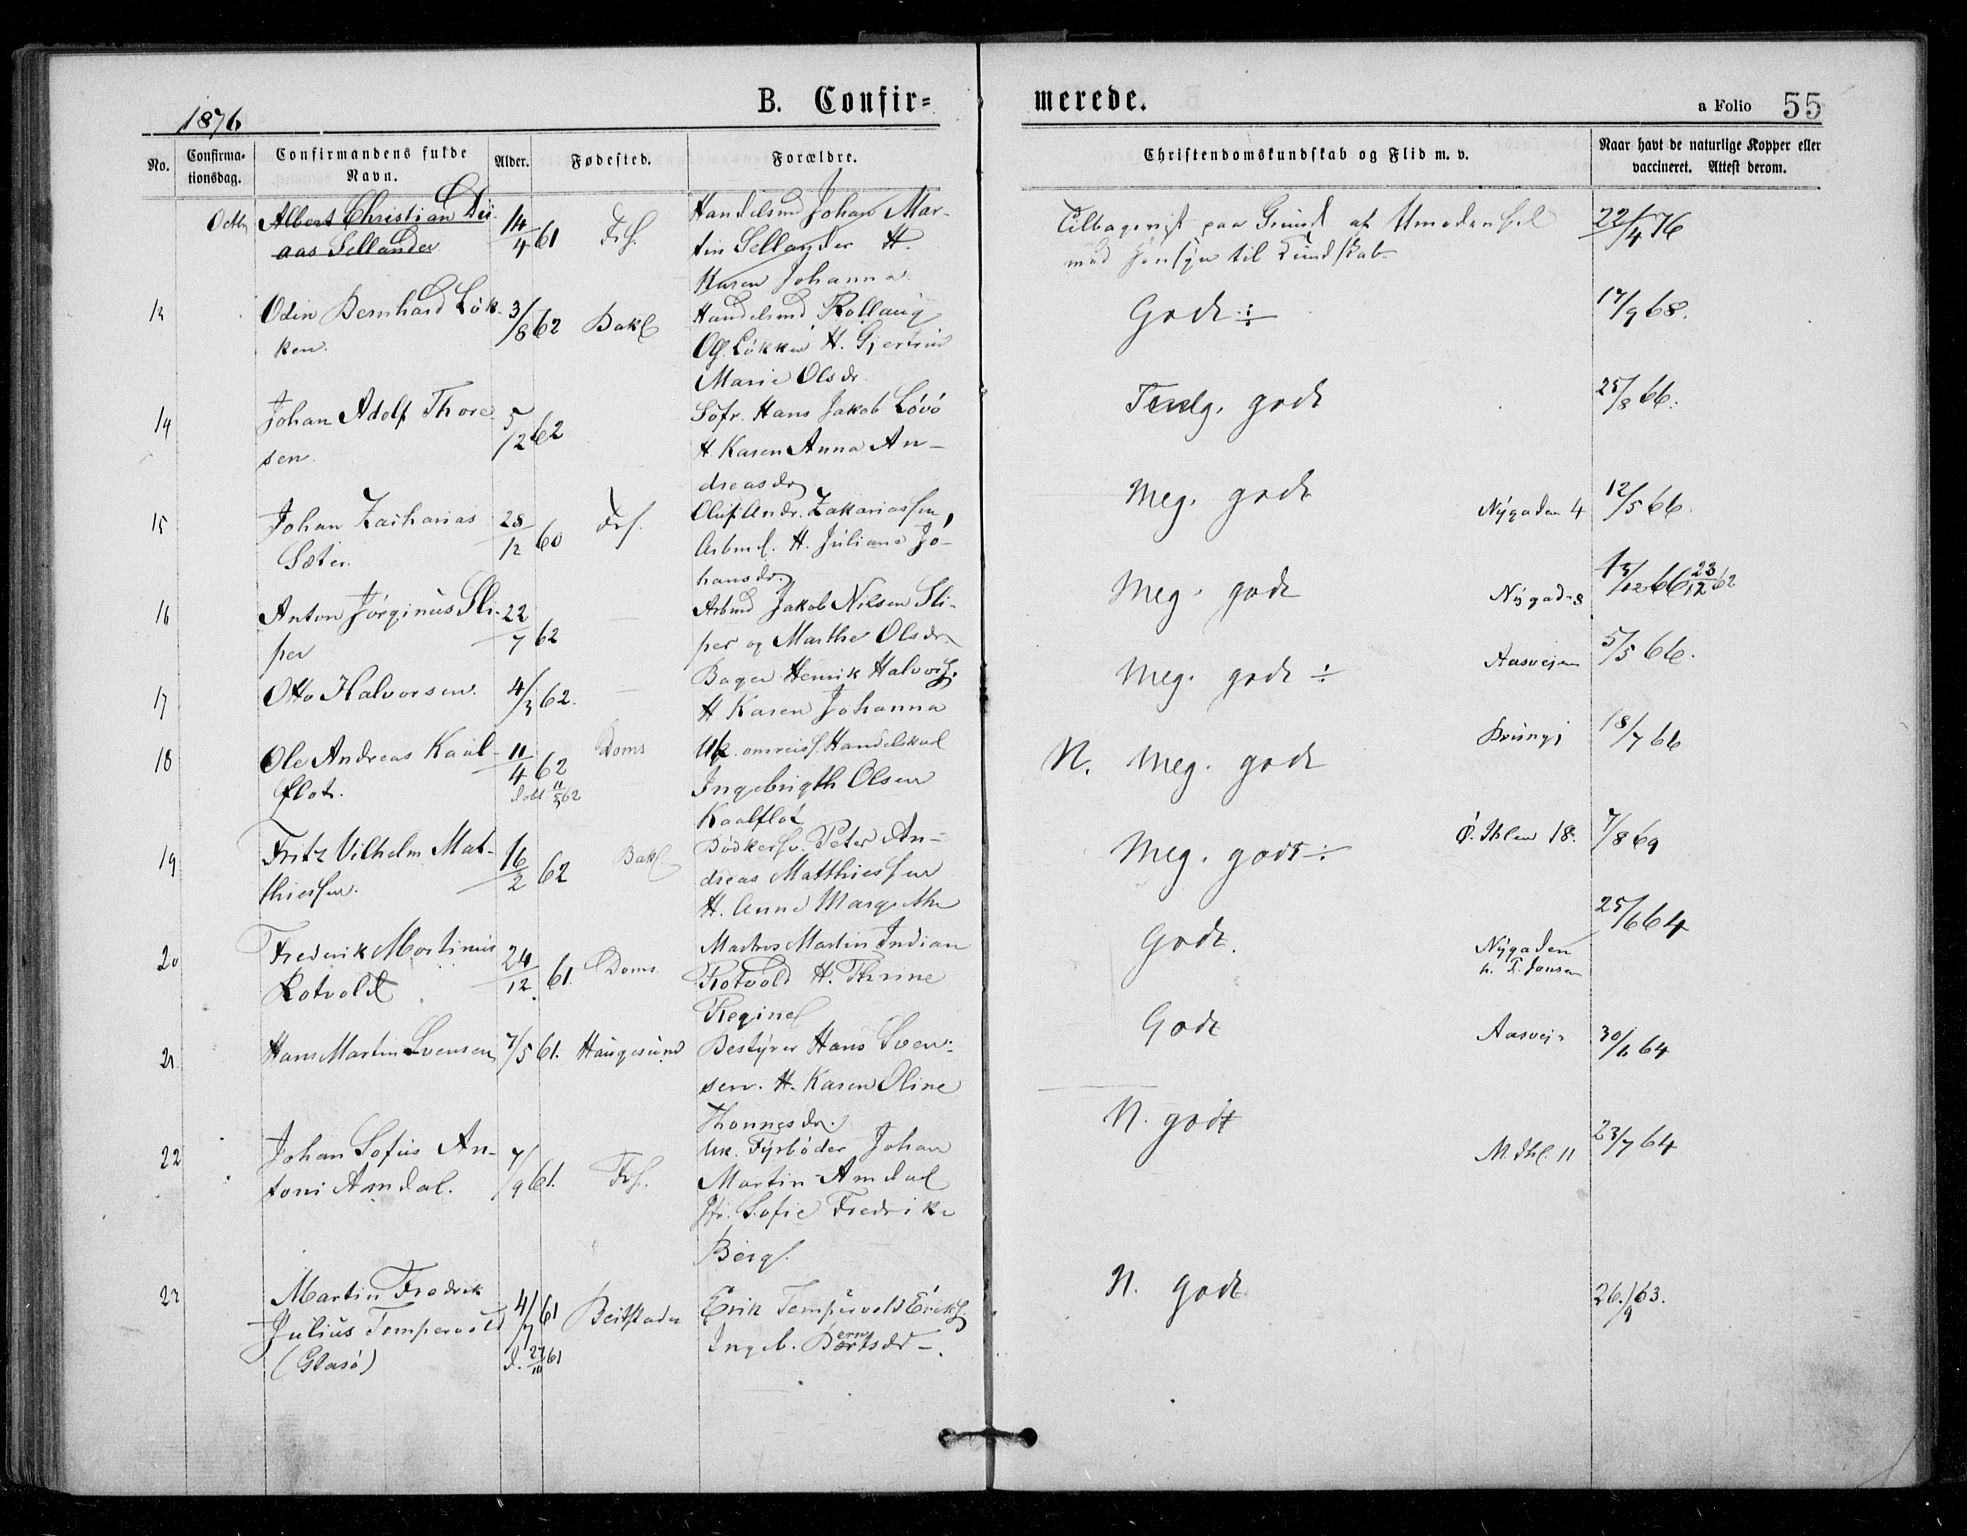 1876
B. Confir=
merede.
a Folio 55
No.
Confirma-
tionsdag.
Confirmandens fulde
Navn.
Alder.
Fødested.
Forældre.
Christendomskundskab og Flid m. v.
Naar havt de naturlige Kopper eller
vaccineret. Attest derom.
Octb
Albert Christian Dü-
aas Sellander
14/4 61
Frs.
Handelsmd Johan Mar-
tin Sellander H.
Karen Johanna
Tilbagevist paa Grund af Umodenhed
med Hensyn til Kundskab
22/4 76
13
Odin Bernhard Løk-
ken.
3/8 62
Bakl
Handelsmd Rollaug
Løkken H. Gjertrud
Marie Olsdr.
Godt ÷
17/9 68.
14
Johan Adolf Thore
sen.
5/12 62
Hans Jakob Løvö
H. Karen Anna An-
dreasdr
Temlg. godt
25/8 66.
15
Johan Zacharias
Sæter.
28/12 60
Frs.
Oluf Andr. Zakariassen,
Arbmd. H. Juliane Jo-
hansdr.
Meg. godt
Nygaden 4
12/5 66.
16
Anton Jørginus Sli-
per
22/7 62
—
Arbmd Jakob Nilsen Sli-
per og Marthe Olsdr
Meg. godt
Nygad. 8
13/12 66 23/12 62
17
Otto Halvorsen.
4/3 62.
—
Bager Henrik Halvors.
H Karen Johanna
Meg. godt ÷
Aasvejen
5/5 66.
18
Ole Andreas Kaal-
flot.
11/4 62
Doms
Uk. omreis. Handelskarl
Ingebrigth Olsen
Kaalflot
N. Meg. godt
18/7 66
19
Fritz Vilhelm Mat-
thiessen.
16/2 62
Bakl
Bødkersv. Peter An-
dreas Matthiessen
H. Anne Margrethe
Meg. godt ÷
Ø. Ihlen 18.
7/8 69
20
Frederik Mortinus
Rotvold
24/12 61.
Doms.
Matros Martin Indian
Rotvold H. Thrine
Regine
Godt.
Nygaden
h. F. Jonsen
25/6 64
21
Hans Martin Svensen
7/5 61.
Haugesund
Bestyrer Hans Sven-
sen. H. Karen Oline
Thonnesdr.
Godt
Aasvej
30/6 64
22
Johan Sofus An-
toni Amdal.
7/9 61.
Frs.
Uk. Fyrbøder Johan
Martin Amdal
Sofie Fredrike
Berg.
N. godt
M. Ihl. 11
23/7 64
23
Martin Fredrik
Julius Tempervold
(Glasø)
4/7 61
d. 27/10 61
Beitstaden
Erik Tempervold Eriks.
Ingeb. Berntsdr.
N. godt
26./9 63.